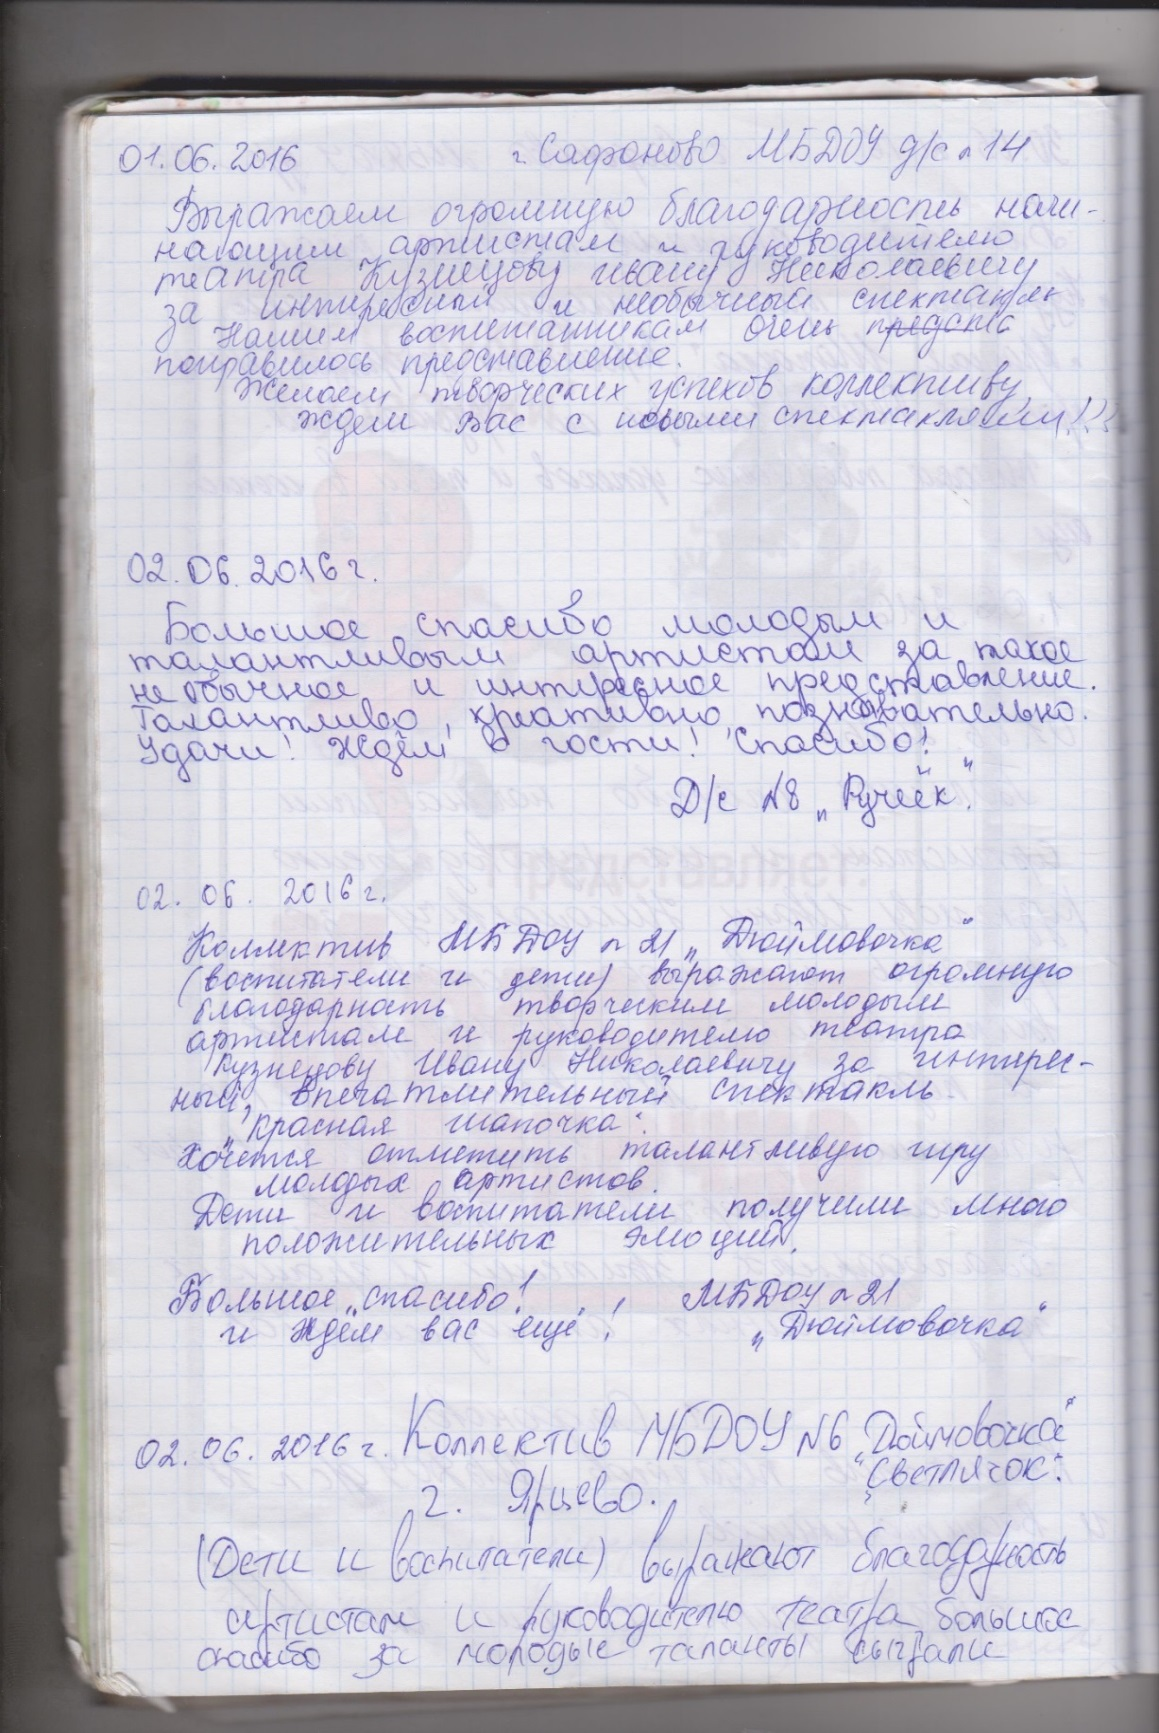 01.06.2016 г. Сафоново МБДОУ д/с №14
Выражаем огромную благодарность начи-
нающим артистам и руководителю
театра Кузнецову Ивану Николаевичу
за интересный и необычный спектакль
Нашим воспитанникам очень предста
понравилось представление.
Желаем творческих успехов коллективу,
ждем вас с новыми спектаклями!!!
02.06.2016 г.
Большое спасибо молодым и
талантливым артистам за такое
необычное и интересное представление.
Талантливо, креативно, познавательно.
Удачи! Ждём в гости! Спасибо!
Д/с №8 „Ручеёк".
02. 06. 2016 г.
Коллектив МБДОУ №21 „Дюймовочка"
(воспитатели и дети) выражают огромную
благодарность творческим молодым
артистам и руководителю театра
Кузнецову Ивану Николаевичу за интерес-
ный, впечатлительный спектакль
„Красная шапочка".
Хочется отметить талантливую игру
молодых артистов.
Дети и воспитатели получили много
положительных эмоций.
Большое спасибо! МБДОУ №21
и ждём вас ещё! „Дюймовочка"
02.06.2016 г. Коллектив МБДОУ №6 „Дюймовочка"
„Светлячок".
г. Ярцево.
(Дети и воспитатели) выражают благодарность
артистам и руководителю театра большое
спасибо за молодые таланты сыграли